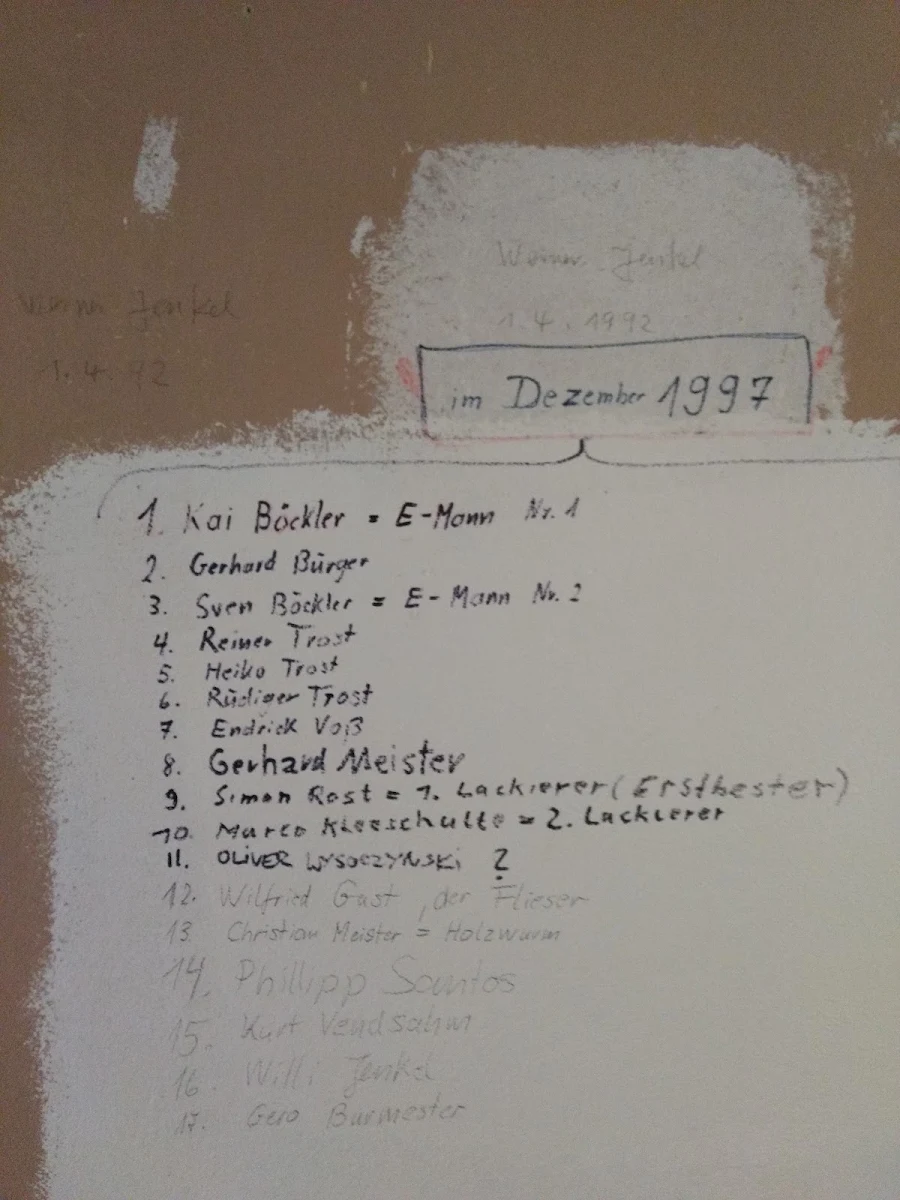 Werner Jenkel
1.4.1992
Werner Jenkel
1.4.92
im Dezember 1997
1. Kai Böckler = E-Mann Nr. 1
2. Gerhard Bürger
3. Sven Böckler = E-Mann Nr. 2
4. Reiner Trost
5. Heiko Trost
6. Rüdiger Trost
7. Endrick Voß
8. Gerhard Meister
9. Simon Rost = 1. Lackierer (Erstbester)
10. Marco Kleeschulte = 2. Lackierer
11. OLIVER WYSOCZYNSKi ?
12. Wilfried Gust, der Flieser
13. Christian Meister = Holzwurm
14. Phillipp Santos
15. Kurt
16. Willi Jenkel
17. Gero Burmester